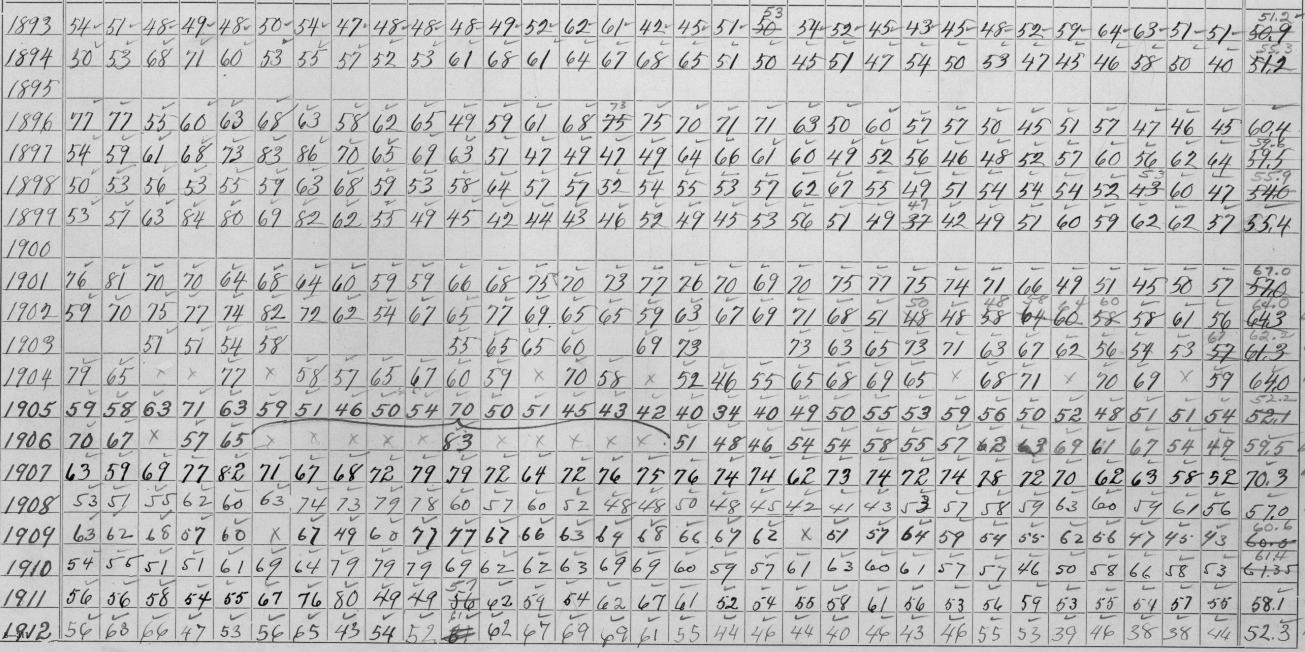 1893 54 51 48 49 48 50 54 47 48 48 48 49 52 62 61 42 45 51 53 50 54 52 45 43 45 48 52 59 64 63 51 51 51.2 50.9
1894 50 53 68 71 60 53 55 57 52 53 61 68 61 64 67 68 65 51 50 45 51 47 54 50 53 47 45 46 58 50 40 55.3 51.2
1895
1896 77 77 55 60 63 68 63 58 62 65 49 59 61 68 73 75 75 70 71 71 63 50 60 57 57 50 45 51 57 47 46 45 60.4
1897 54 59 61 68 73 83 86 70 65 69 63 51 47 49 47 49 64 66 61 60 49 52 56 46 48 52 57 60 56 62 64 59.6 59.5
1898 50 53 56 53 55 59 63 68 59 53 58 64 57 57 52 54 55 53 57 62 67 55 49 51 54 54 54 52 53 43 60 47 55.9 54.0
1899 53 57 63 84 80 69 82 62 55 49 45 42 44 43 46 52 49 45 53 56 51 49 47 37 42 49 51 60 59 62 62 57 55.4
1900
1901 76 81 70 70 64 68 64 60 59 59 66 68 75 70 73 77 76 70 69 70 75 77 75 74 71 66 49 51 45 50 57 67.0 57.0
1902 59 70 75 77 74 82 72 62 54 67 65 77 69 65 65 59 63 67 69 71 68 51 50 48 48 48 58 58 64 64 60 60 58 58 61 56 64.0 64.3
1903 51 51 54 58 55 65 65 60 69 73 73 63 65 73 71 63 67 62 56 54 53 61 57 62.2 61.3
1904 79 65 x x 77 x 58 57 65 67 60 59 x 70 58 x 52 46 55 65 68 69 65 x 68 71 x 70 69 x 59 64.0
1905 59 58 63 71 63 59 51 46 50 54 70 50 51 45 43 42 40 34 40 49 50 55 53 59 56 50 52 48 51 51 54 52.2 52.1
1906 70 67 x 57 65 x x x x x 83 x x x x x 51 48 46 54 54 58 55 57 62 63 69 61 67 54 49 59.5
1907 63 59 69 77 82 71 67 68 72 79 79 72 64 72 76 75 76 74 74 62 73 74 72 74 78 72 70 62 63 58 52 70.3
1908 53 51 55 62 60 63 74 73 79 78 60 57 60 52 48 48 50 48 45 42 41 43 53 57 58 59 63 60 59 61 56 57.0
1909 63 62 68 57 60 x 67 49 60 77 77 67 66 63 64 68 66 67 62 x 51 57 64 59 54 55 62 56 47 45 43 60.6 60.0
1910 54 55 51 51 61 69 64 79 79 79 69 62 62 63 69 69 60 59 57 61 63 60 61 57 57 46 50 58 66 58 53 61.4 61.35
1911 56 56 58 54 55 67 76 80 49 49 57 56 62 59 54 62 67 61 52 54 55 58 61 56 53 56 59 53 55 54 57 55 58.1
1912 56 63 66 47 53 56 65 43 54 52 61 62 67 69 69 61 55 44 46 44 40 46 43 46 55 53 39 46 38 38 44 52.3